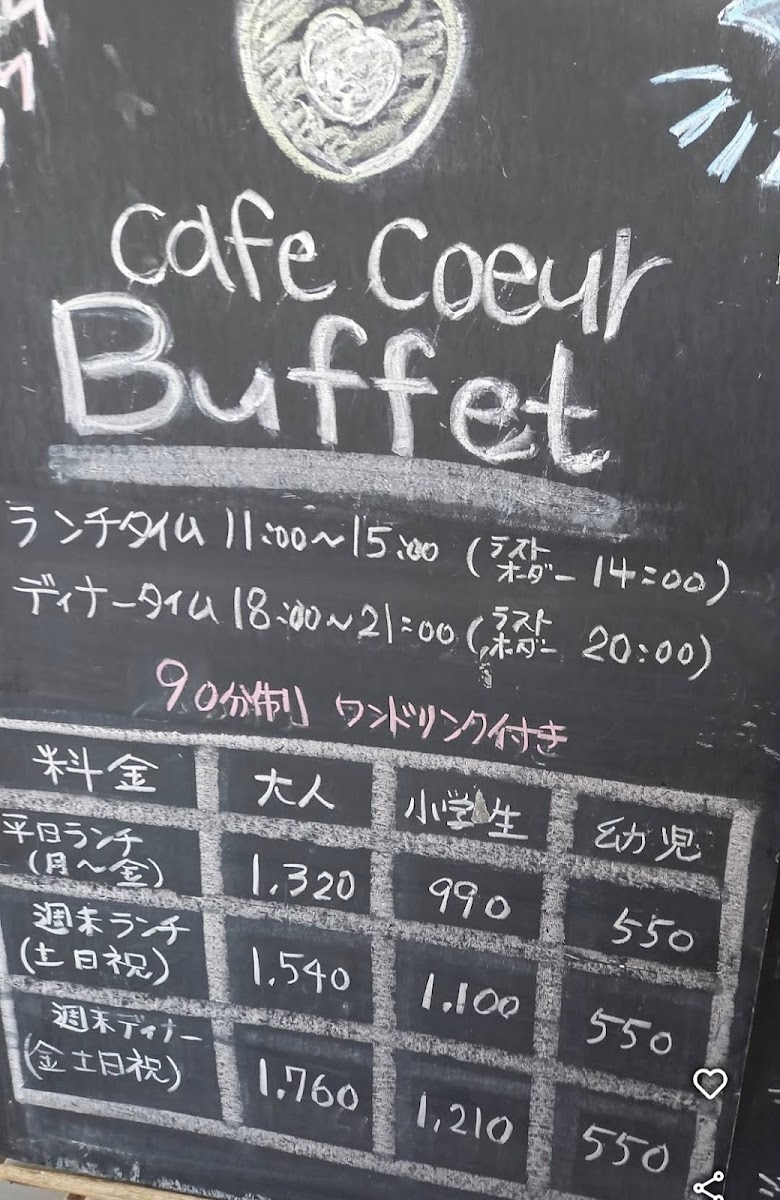 Cafe Coeur
Buffet
ランチタイム 11:00～15:00 (ラストオーダー 14:00)
ディナータイム 18:00～21:00 (ラストオーダー 20:00)
90分制 ワンドリンク付き
料金 大人 小学生 幼児
平日ランチ(月～金) 1,320 990 550
週末ランチ(土日祝) 1,540 1,100 550
週末ディナー(金土日祝) 1,760 1,210 550